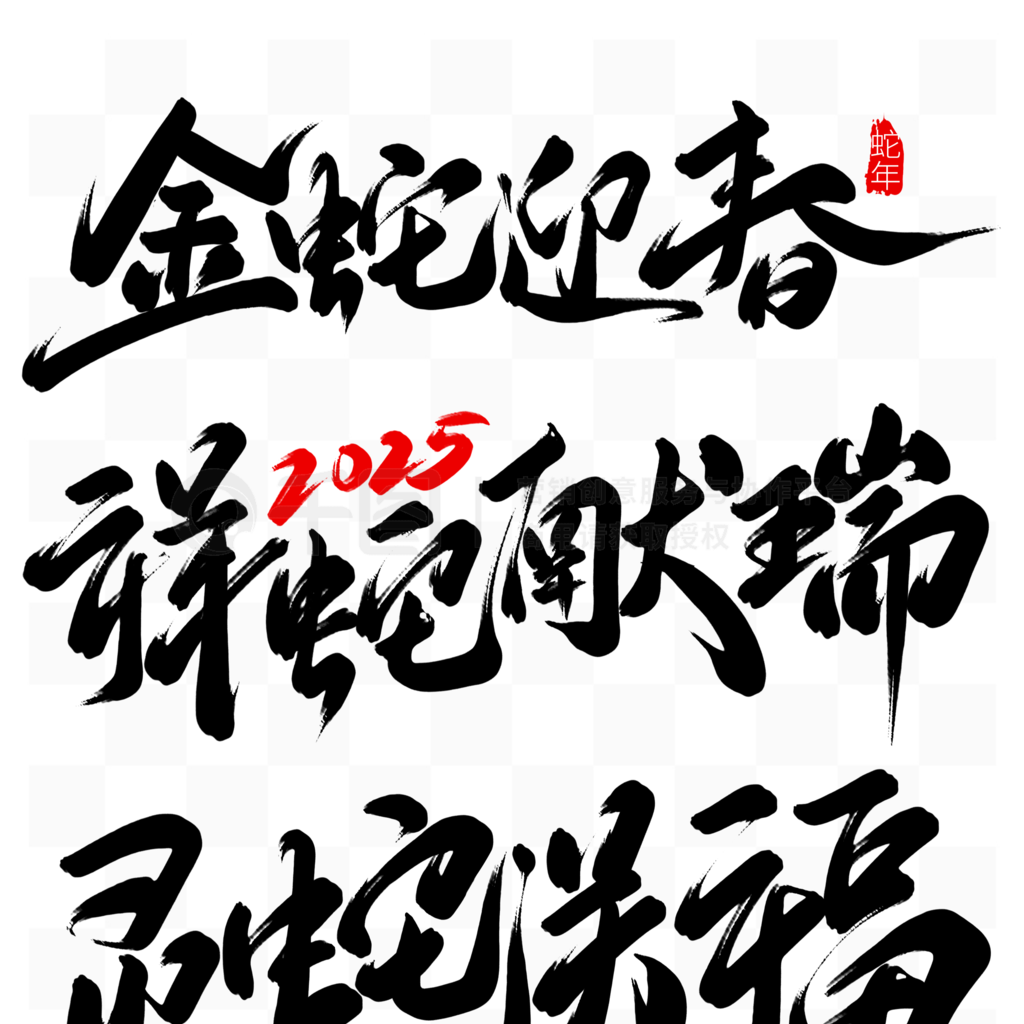 金蛇迎春
蛇年
2025
祥蛇献瑞
灵蛇送福